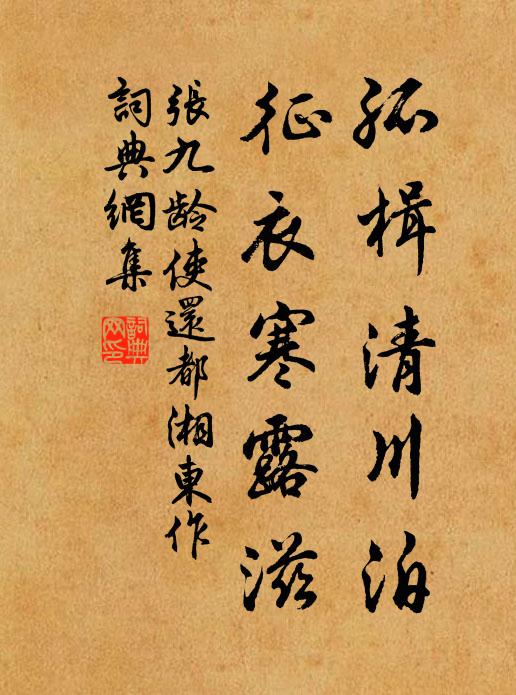 孤楫清川泊
征衣寒露滋
張九齡使還都湘東作
詞典網集
詞典網印